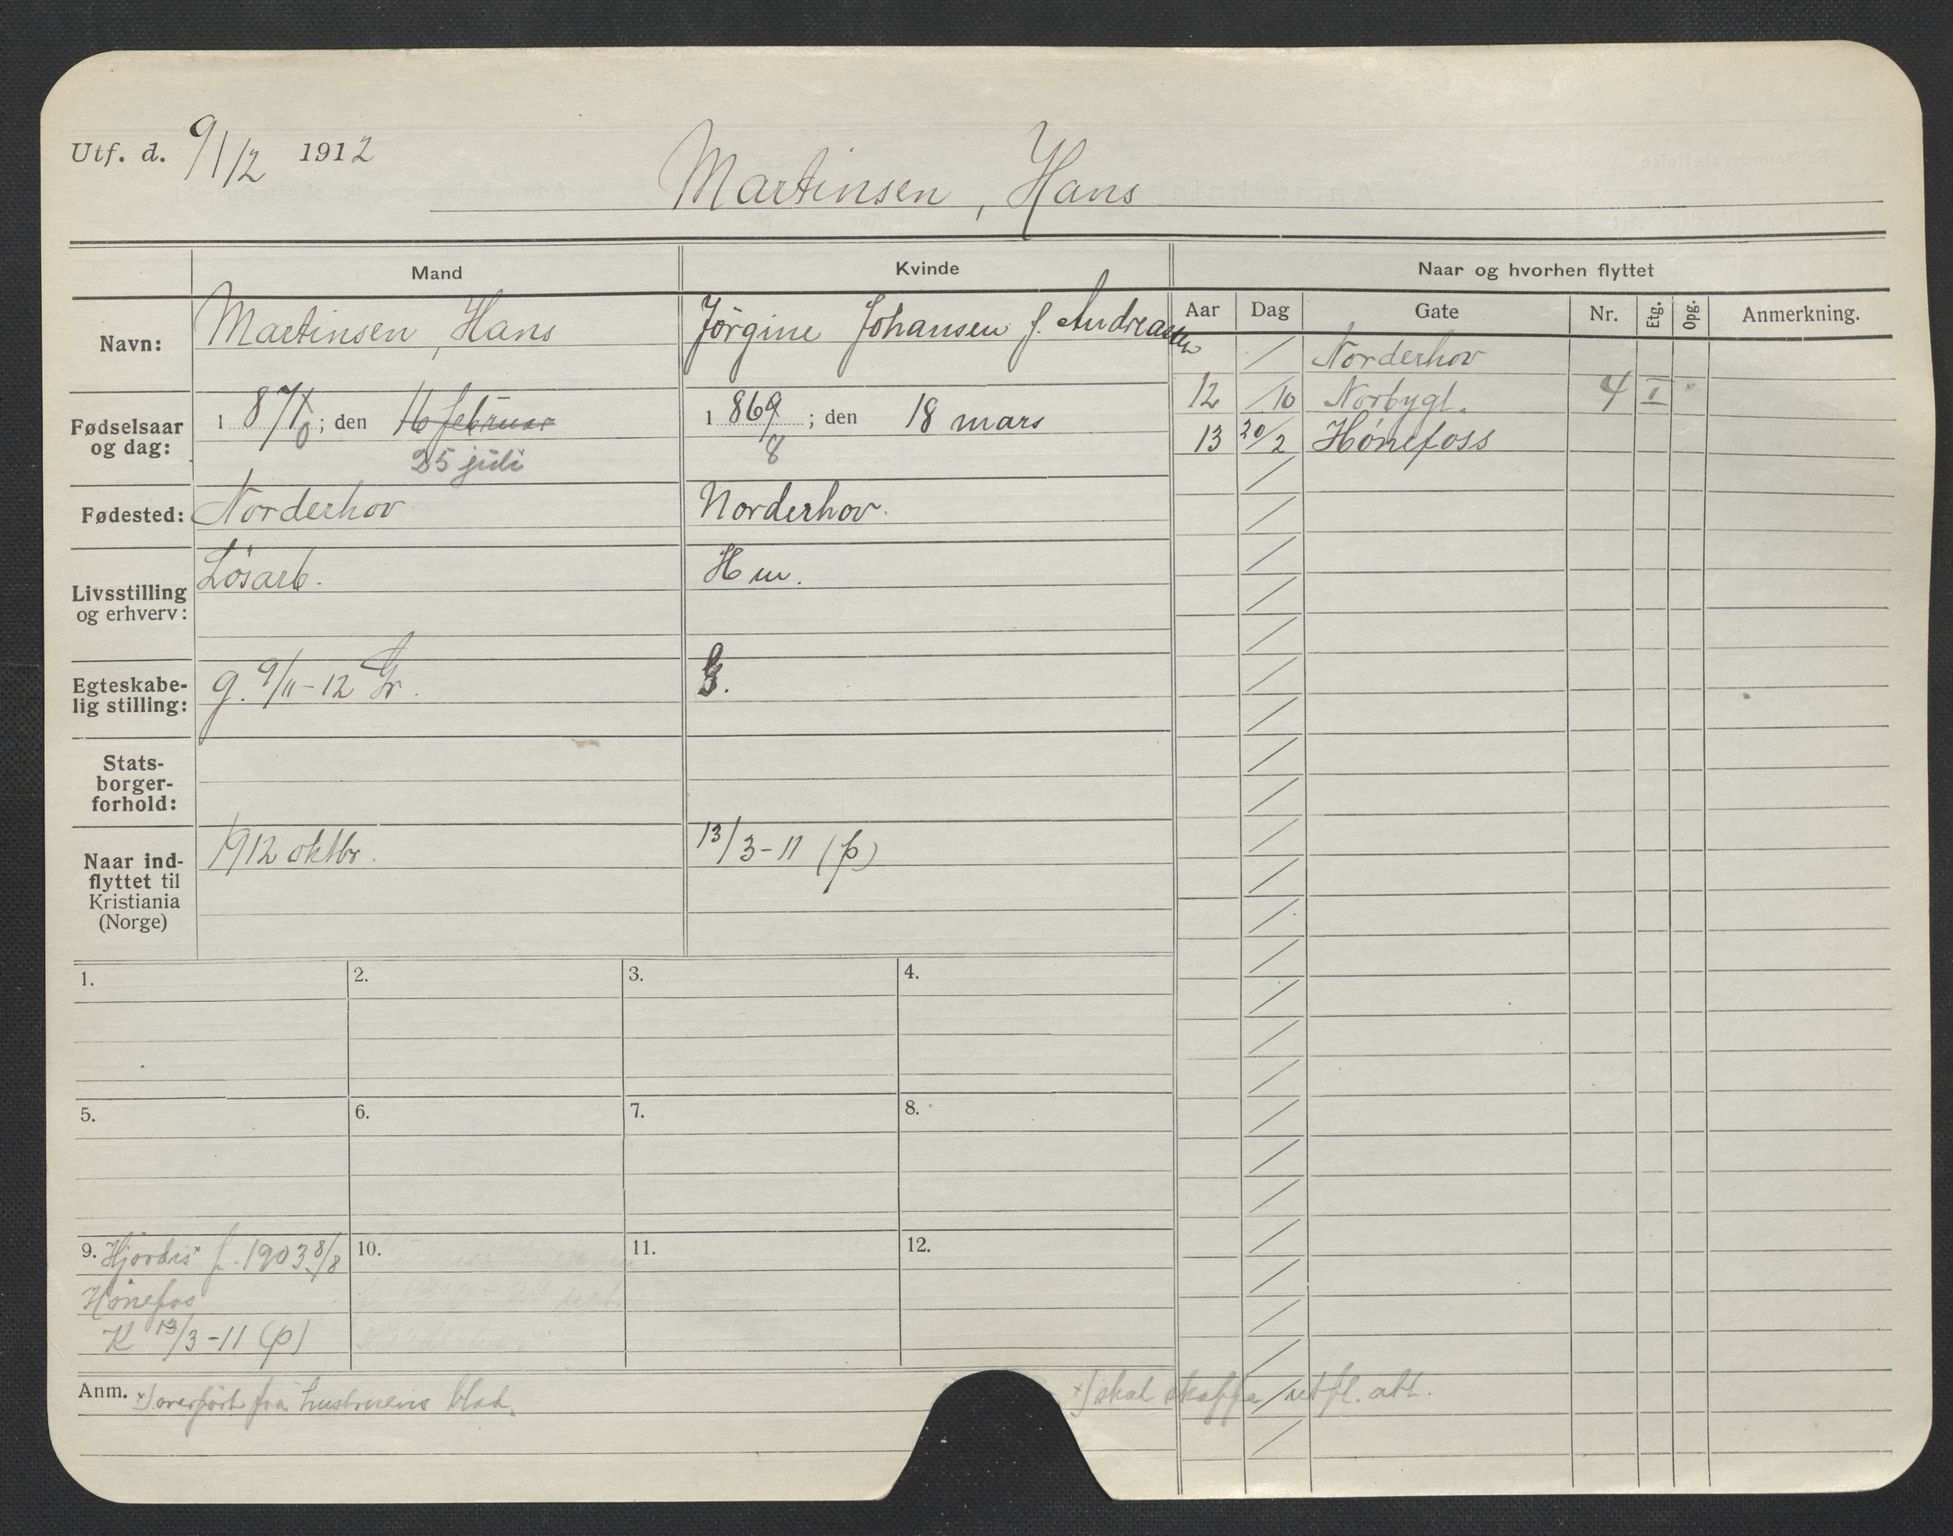 Utf. d. 9/12 1912
Martinsen, Hans
Mand
Kvinde
Naar og hvorhen flyttet
Aar Dag Gate Nr. Etg. Opg. Anmerkning.
Navn: Martinsen, Hans
Jørgine Johansen f. Andreassen
Fødselsaar og dag:
1 871 0; den 16 februar
25 juli
1 869; den 18 mars
8
Fødested: Norderhov
Norderhov.
Livsstilling
og erhverv:
Løsarb.
Hm.
Egteskabe-
lig stilling:
g. 9/11-12 Gr.
G.
Stats-
borger-
forhold:
Naar ind-
flyttet til
Kristiania
(Norge)
1912 oktbr.
13/3-11 (p)
/ Norderhov
12 /10 Norbygt. 4 I
13 20/2 Hønefoss
1. 2. 3. 4.
5. 6. 7. 8.
9. Hjørdis f. 1903 8/8
Hønefos
K 13/3-11 (p)
10. 11. 12.
Anm. x) overført fra hustruens blad.
x) skal skaffe utfl. att.